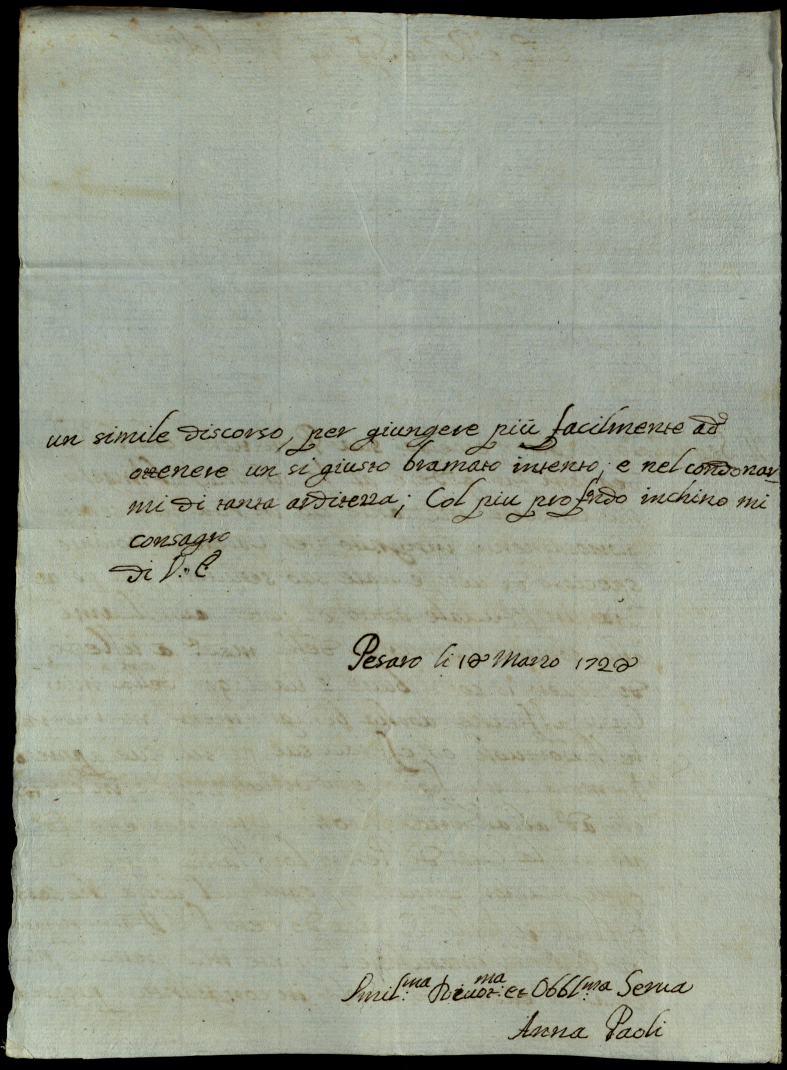 un simile discorso, per giungere più facilmente ad
ottenere un si giusto bramato intento, e nel condonar-
mi di tanta arditezza; Col piu profondo inchino mi
consagro
di V: E
Pesaro li 18 Marzo 1728
Umil:ma Divot:ma et Obbl:ma Serua
Anna Paoli